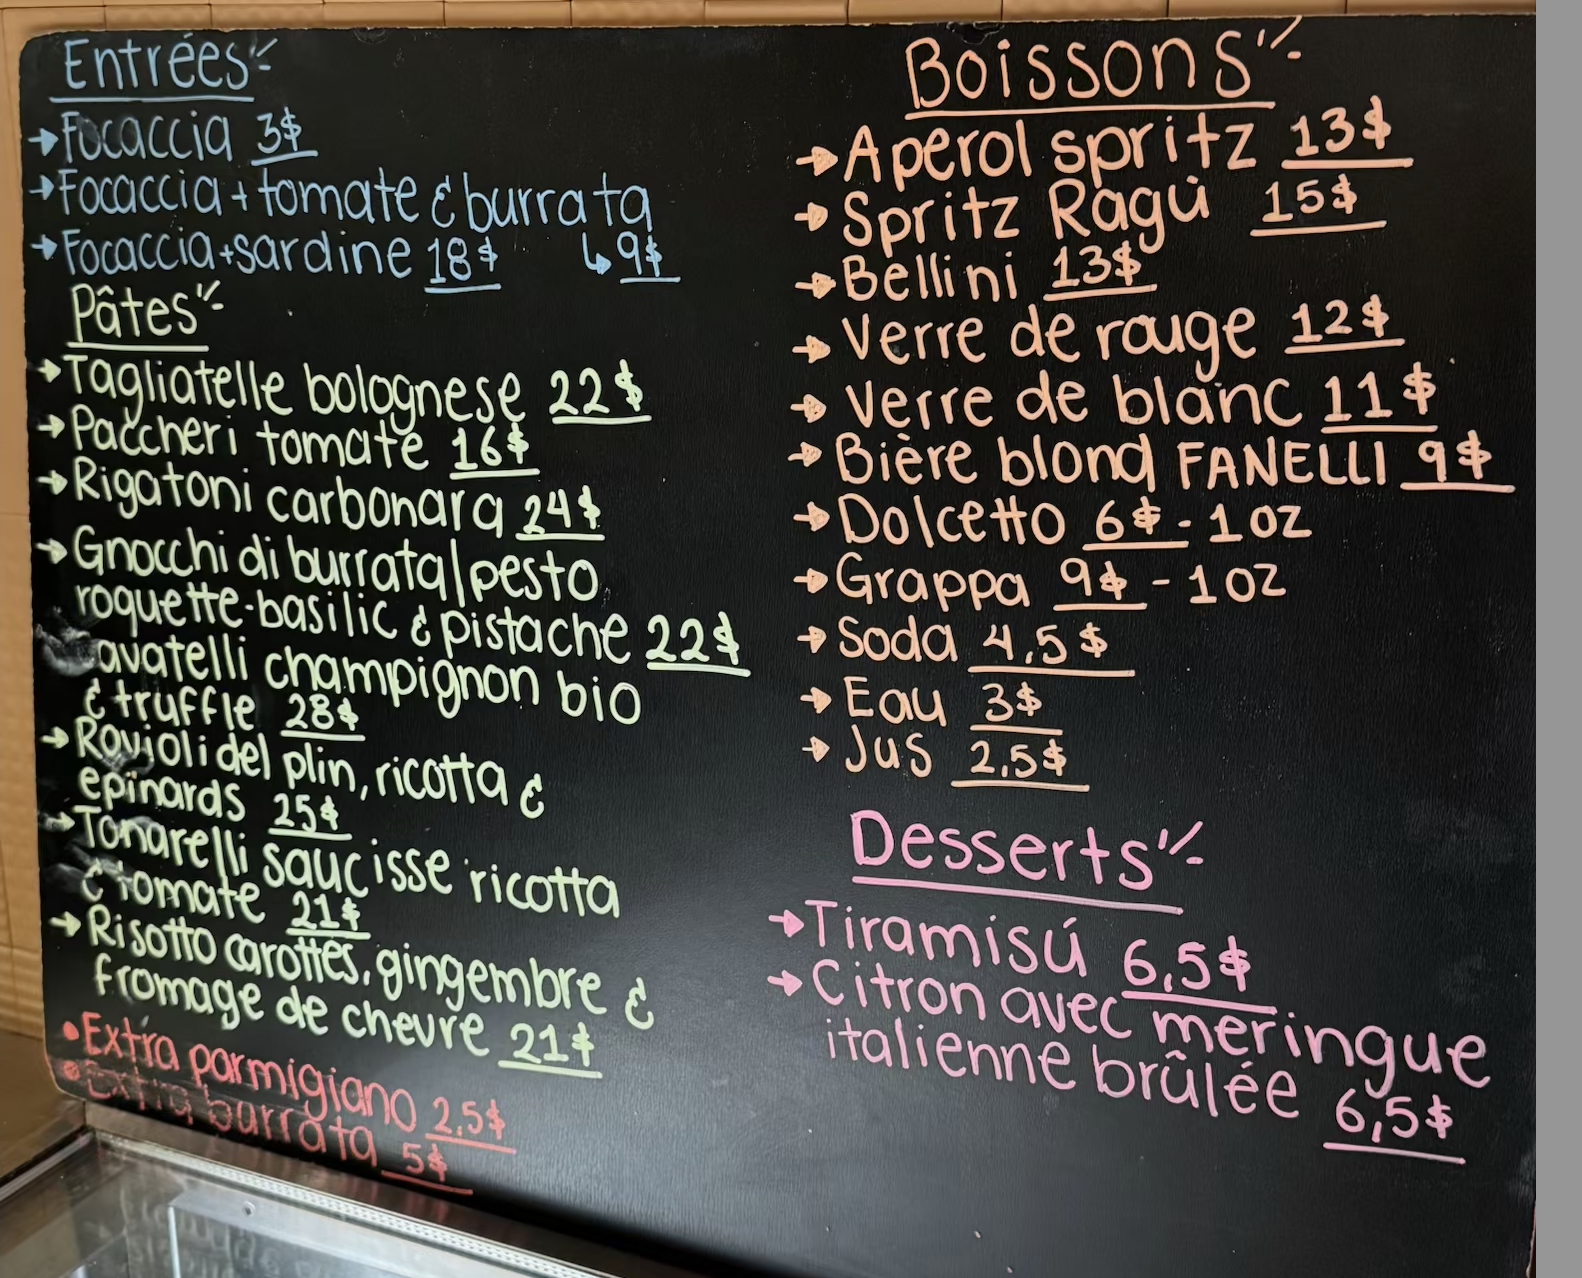 Entrées
→ Focaccia 3$
→ Focaccia + tomate & burrata
↳ 9$
→ Focaccia + sardine 18$
Pâtes
→ Tagliatelle bolognese 22$
→ Paccheri tomate 16$
→ Rigatoni carbonara 24$
→ Gnocchi di burrata | pesto
roquette-basilic & pistache 22$
avatelli champignon bio
& truffle 28$
→ Ravioli del plin, ricotta &
epinards 25$
→ Tonarelli saucisse ricotta
& tomate 21$
→ Risotto carottes, gingembre &
fromage de chevre 21$
• Extra parmigiano 2,5$
• Extra burrata 5$
Boissons
→ Aperol spritz 13$
→ Spritz Ragù 15$
→ Bellini 13$
→ Verre de rouge 12$
→ Verre de blanc 11$
→ Bière blond FANELLI 9$
→ Dolcetto 6$ - 1 oz
→ Grappa 9$ - 1 oz
→ Soda 4,5$
→ Eau 3$
→ Jus 2,5$
Desserts
→ Tiramisú 6,5$
→ Citron avec meringue
italienne brûlée 6,5$